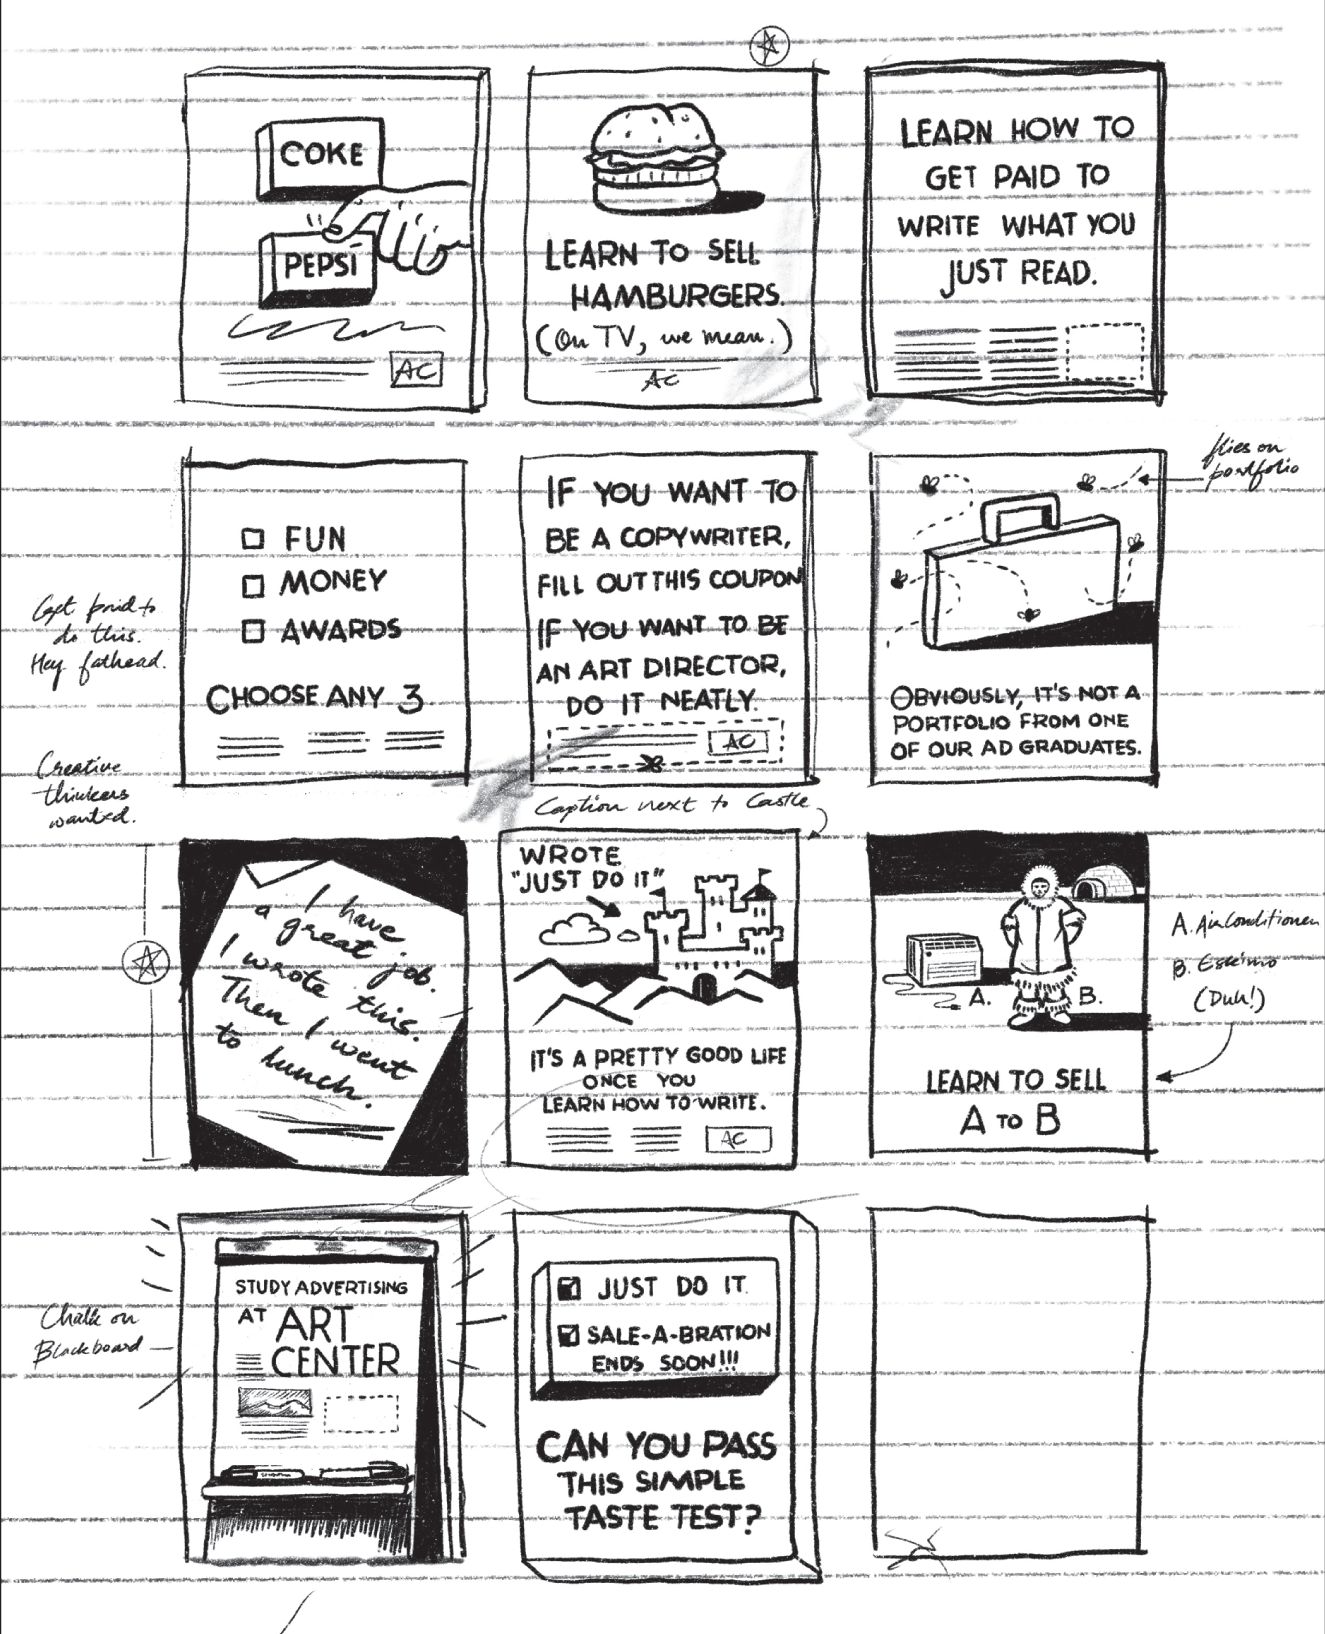 COKE
PEPSI
AC
LEARN TO SELL
HAMBURGERS.
(On TV, we mean.)
AC
LEARN HOW TO
GET PAID TO
WRITE WHAT YOU
JUST READ.
FUN
MONEY
AWARDS
CHOOSE ANY 3
Get paid to
do this.
Hey fathead.
Creative
thinkers
wanted.
IF YOU WANT TO
BE A COPYWRITER,
FILL OUT THIS COUPON
IF YOU WANT TO BE
AN ART DIRECTOR,
DO IT NEATLY.
AC
flies on
portfolio
OBVIOUSLY, IT'S NOT A
PORTFOLIO FROM ONE
OF OUR AD GRADUATES.
I have
a great job.
I wrote this.
Then I went
to lunch.
Caption next to Castle
WROTE
"JUST DO IT"
IT'S A PRETTY GOOD LIFE
ONCE YOU
LEARN HOW TO WRITE.
AC
A.
B.
LEARN TO SELL
A TO B
A. Air Conditioner
B. Eskimo
(Duh!)
Chalk on
Blackboard
STUDY ADVERTISING
AT ART
CENTER
JUST DO IT.
SALE-A-BRATION
ENDS SOON!!!
CAN YOU PASS
THIS SIMPLE
TASTE TEST?